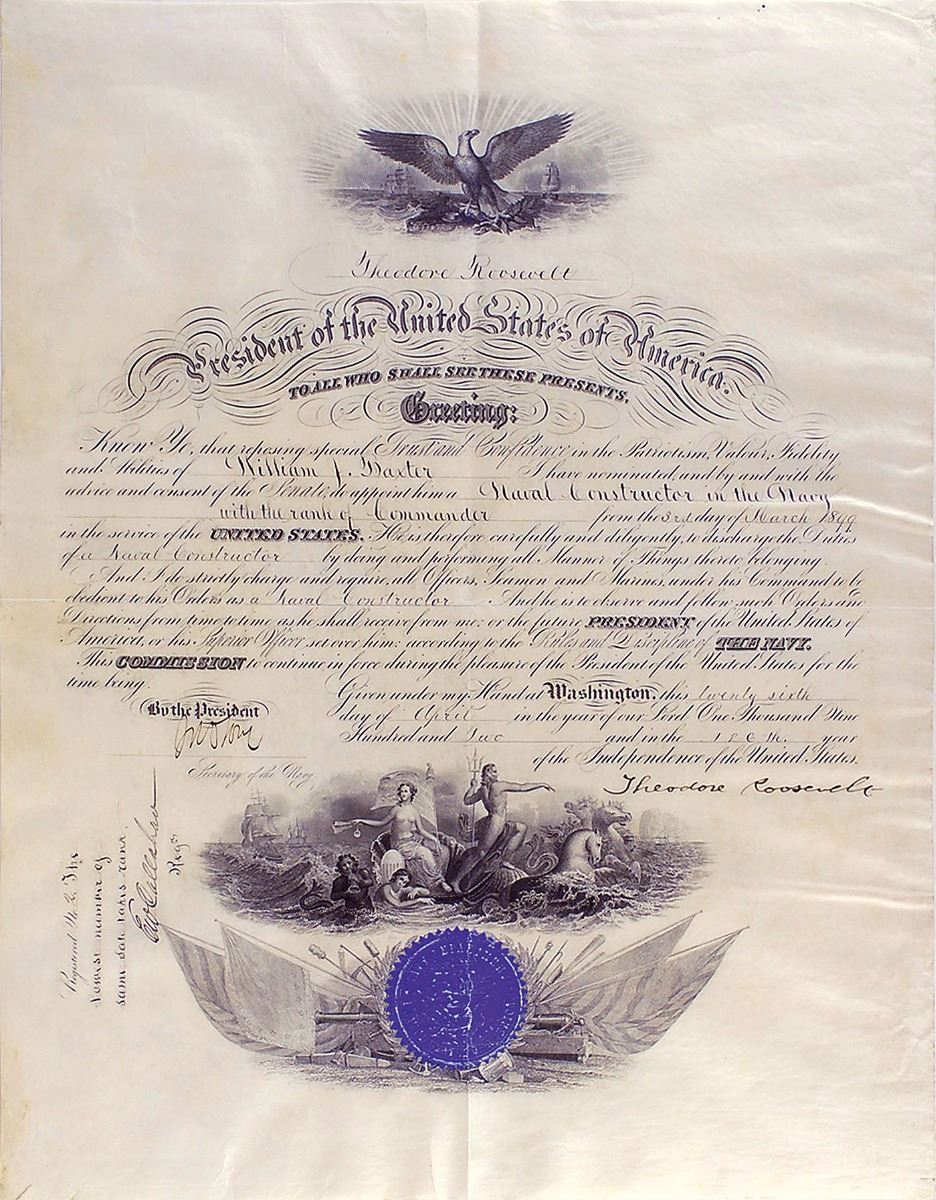 Theodore Roosevelt
President of the United States of America.
TO ALL WHO SHALL SEE THESE PRESENTS,
Greeting:
Know Ye, that reposing special Trust and Confidence in the Patriotism, Valour, Fidelity
and Abilities of William J. Baxter I have nominated, and by and with the
advice and consent of the Senate, do appoint him a Naval Constructor in the Navy
with the rank of Commander from the 3rd day of March 1899
in the service of the UNITED STATES. He is therefore carefully and diligently, to discharge the Duties
of a Naval Constructor by doing and performing all Manner of Things thereto belonging.
And I do strictly charge and require, all Officers, Seamen and Marines, under his Command to be
obedient to his Orders as a Naval Constructor And he is to observe and follow such Orders and
Directions from time to time as he shall receive from me; or the future PRESIDENT of the United States of
America, or his Superior Officer set over him; according to the Rules and Discipline of THE NAVY.
This COMMISSION to continue in force during the pleasure of the President of the United States for the
time being.
Given under my Hand at Washington, this twenty sixth
day of April in the year of our Lord One Thousand Nine
Hundred and Two and in the 126th. year
of the Independence of the United States.
By the President
Secretary of the Navy
Theodore Roosevelt
Registered No. 2. The
lowest number of
same date takes rank.